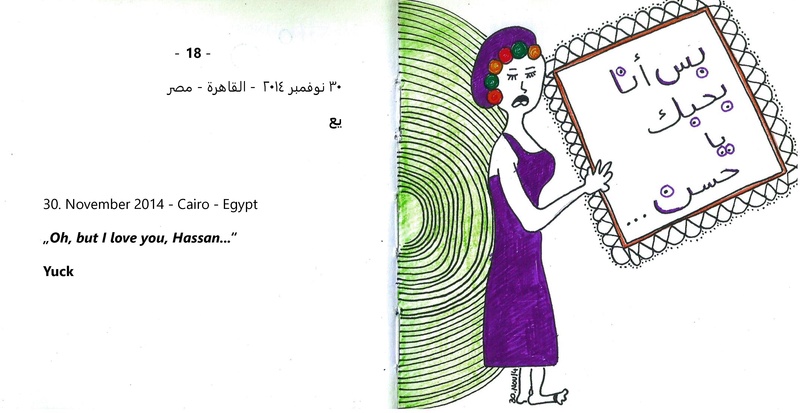 - 18 -
٣٠ نوفمبر ٢٠١٤ - القاهرة - مصر
يع
30. November 2014 - Cairo - Egypt
„Oh, but I love you, Hassan...”
Yuck
بس أنا
بحبك
يا
حسن...
30.Nov14